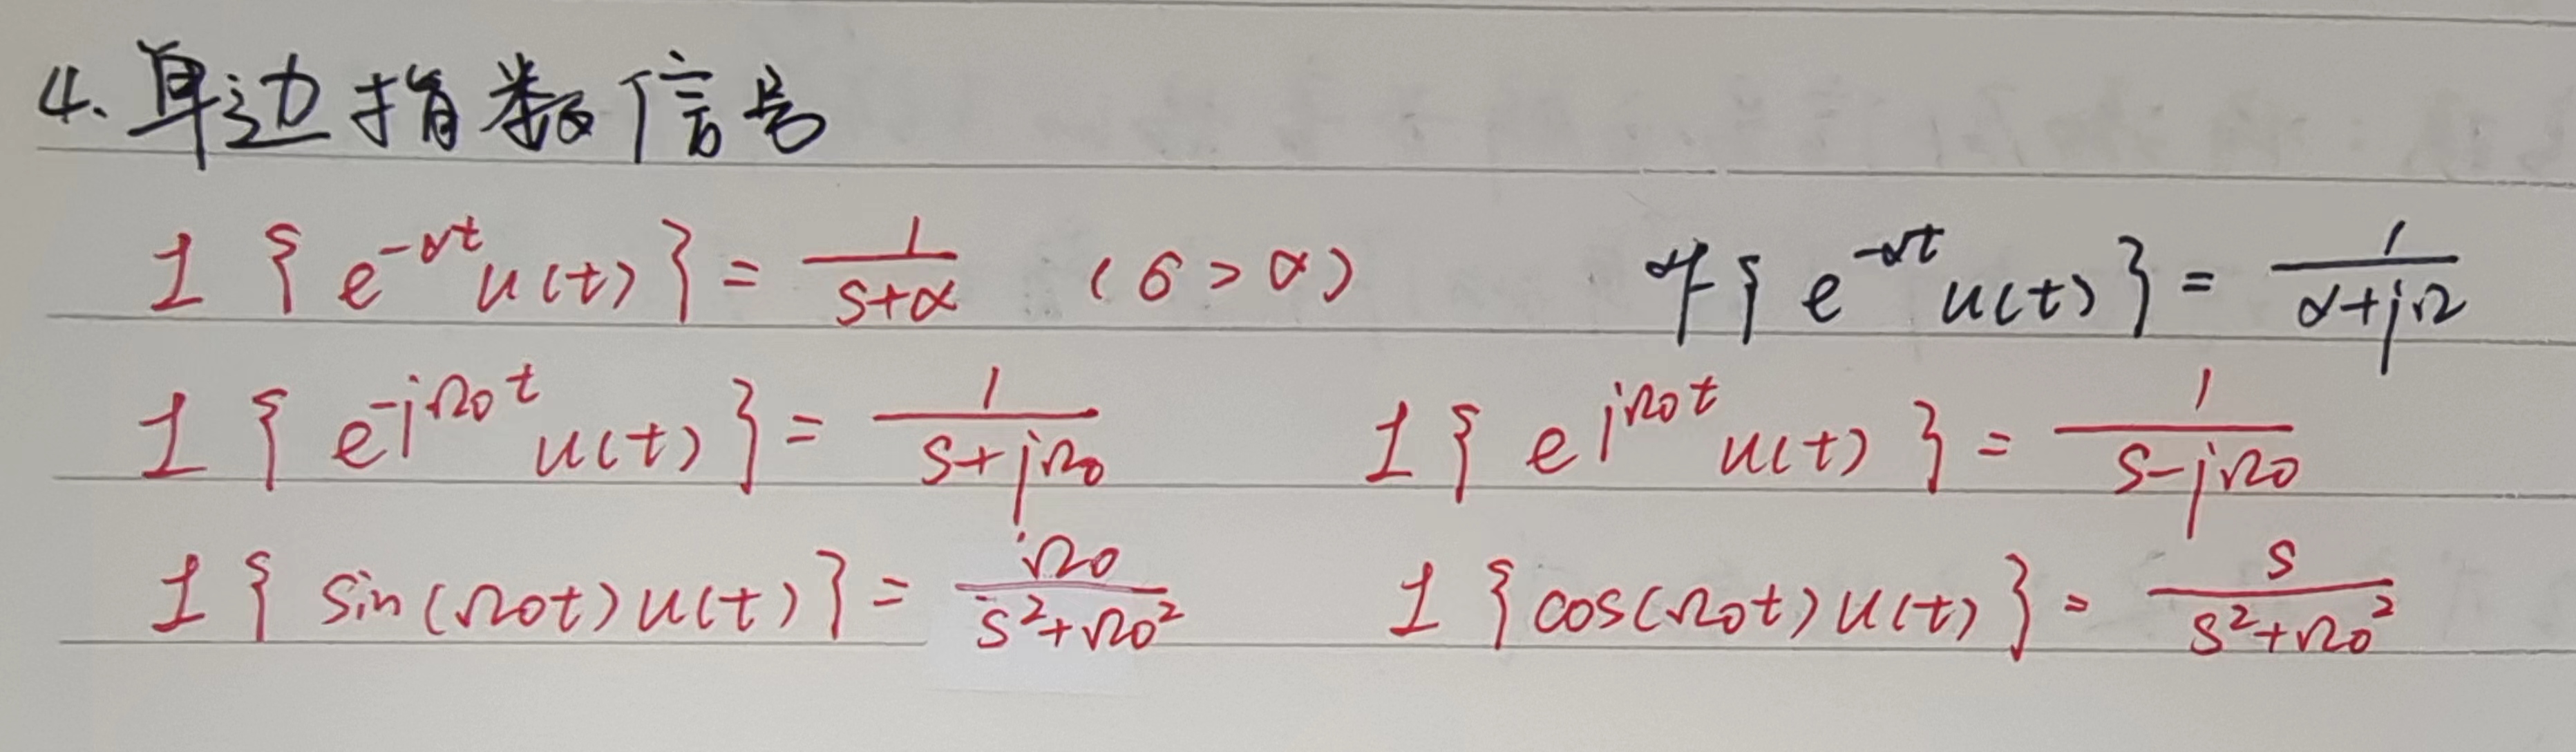 4. 单边指数信号
ℒ{e^{-αt}u(t)} = 1/(s+α) (σ > α) ℱ{e^{-αt}u(t)} = 1/(α+jΩ)
ℒ{e^{-jΩ0t}u(t)} = 1/(s+jΩ0) ℒ{e^{jΩ0t}u(t)} = 1/(s-jΩ0)
ℒ{sin(Ω0t)u(t)} = Ω0/(s²+Ω0²) ℒ{cos(Ω0t)u(t)} = s/(s²+Ω0²)